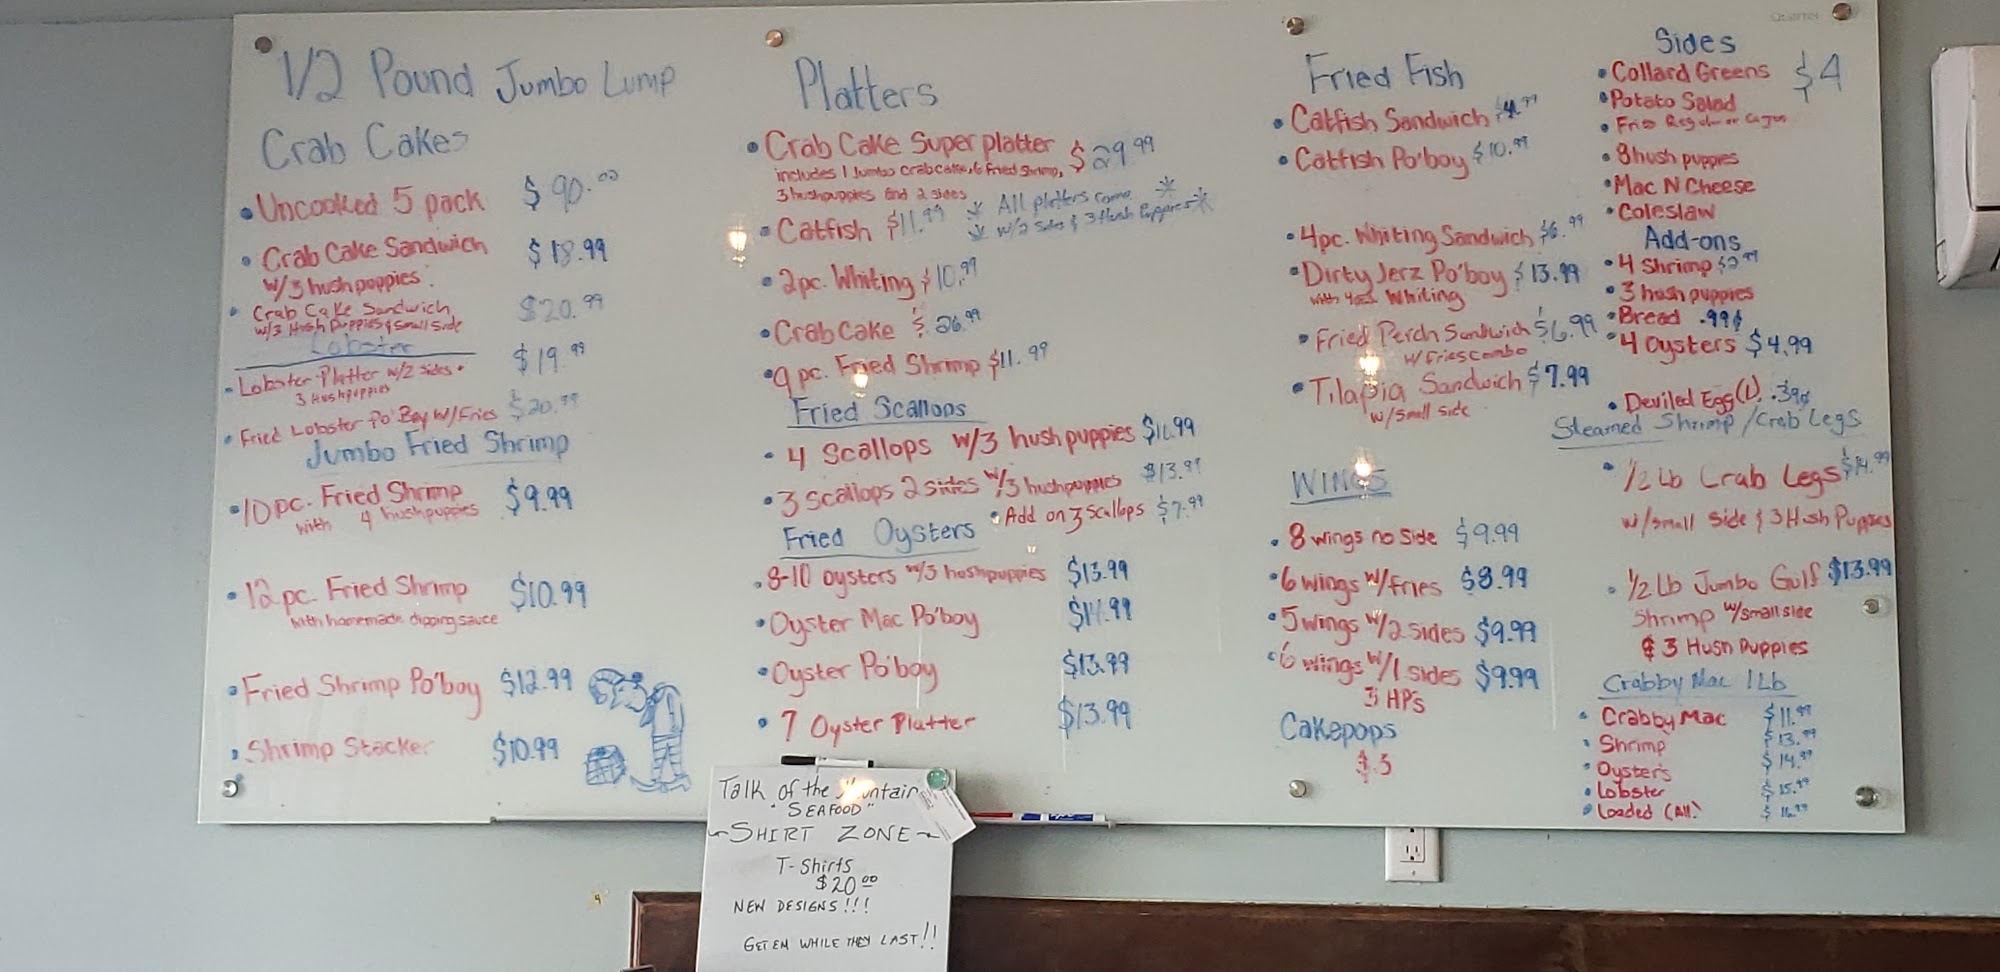 1/2 Pound Jumbo Lump
Crab Cakes
• Uncooked 5 pack $90.00
• Crab Cake Sandwich $18.99
w/3 hushpuppies
• Crab Cake Sandwich $20.99
w/3 Hush Puppies & small side
Lobster
• Lobster Platter w/2 sides + $19.99
3 Hushpuppies
• Fried Lobster Po' Boy w/Fries $20.99
Jumbo Fried Shrimp
• 10 pc. Fried Shrimp $9.99
with 4 hushpuppies
• 12 pc. Fried Shrimp $10.99
with homemade dipping sauce
• Fried Shrimp Po'boy $12.99
• Shrimp Stacker $10.99
Platters
• Crab Cake Super platter $29.99
includes 1 Jumbo crabcake, 6 Fried Shrimp,
3 hushpuppies and 2 sides
All platters come
w/2 Sides & 3 Hush Puppies
• Catfish $11.99
• 2pc. Whiting $10.99
• Crab Cake $26.99
• 9 pc. Fried Shrimp $11.99
Fried Scallops
• 4 Scallops w/3 hushpuppies
• 3 Scallops 2 sides w/3 hushpuppies $13.99
• Add on 3 Scallops $7.99
Fried Oysters
• 8-10 oysters w/3 hushpuppies $13.99
• Oyster Mac Po'boy $14.99
• Oyster Po'boy $13.99
• 7 Oyster Platter $13.99
Fried Fish
• Catfish Sandwich
• Catfish Po'boy $10.99
• 4pc. Whiting Sandwich $6.99
• Dirty Jerz Po'boy $13.99
with Whiting
• Fried Perch Sandwich $6.99
w/Fries combo
• Tilapia Sandwich $7.99
w/small side
WINGS
• 8 wings no side $9.99
• 6 wings w/fries $8.99
• 5 wings w/2 sides $9.99
• 6 wings w/1 sides $9.99
3 HPs
Cakepops
$.3
Sides
• Collard Greens $4
• Potato Salad
• Fries Regular or Cajun
• 8 hush puppies
• Mac N Cheese
• Coleslaw
Add-ons
• 4 Shrimp $2.99
• 3 hush puppies
• Bread .99¢
• 4 Oysters $4.99
• Deviled Egg (1) .39¢
Steamed Shrimp/Crab Legs
• 1/2 Lb Crab Legs $14.99
w/small side & 3 Hush Puppies
• 1/2 Lb Jumbo Gulf $13.99
Shrimp w/small side
& 3 Hush Puppies
Crabby Mac 1Lb
• Crabby Mac $11.99
• Shrimp $13.99
• Oysters $14.99
• Lobster $15.99
• Loaded (All) $16.99
Talk of the Mountain
"SEAFOOD"
~SHIRT ZONE~
T-Shirts
$20.00
NEW DESIGNS!!!
GET EM WHILE THEY LAST!!